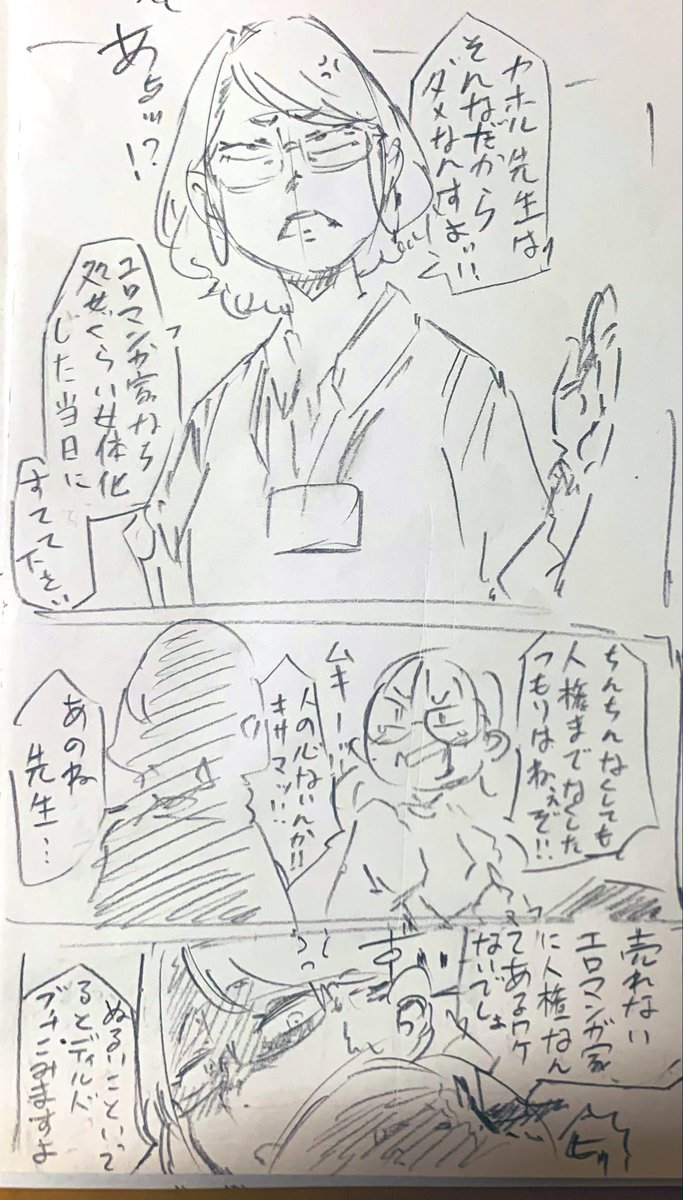 カホル先生は
そんなだから
ダメなんすよ!!
あぁッ!?
エロマンガ家なら
処女くらい女体化
した当日に
すてて下さい
ちんちんなくしても
人権までなくした
つもりはねぇぞ!!
ムキーッ!
人の心ないんか!!
キサマッ!!
あのね
先生…
売れない
エロマンガ家
に人権なん
てあるワケ
ないでしょ
ヒッ
ぬるいこといって
るとディルド
ブチこみますよ